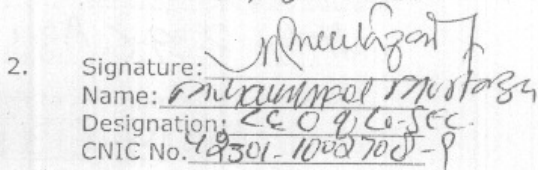 2. Signature:
Name: Muhammad Murtaza
Designation: CEO & Co-Sec.
CNIC No. 42301-1002708-9